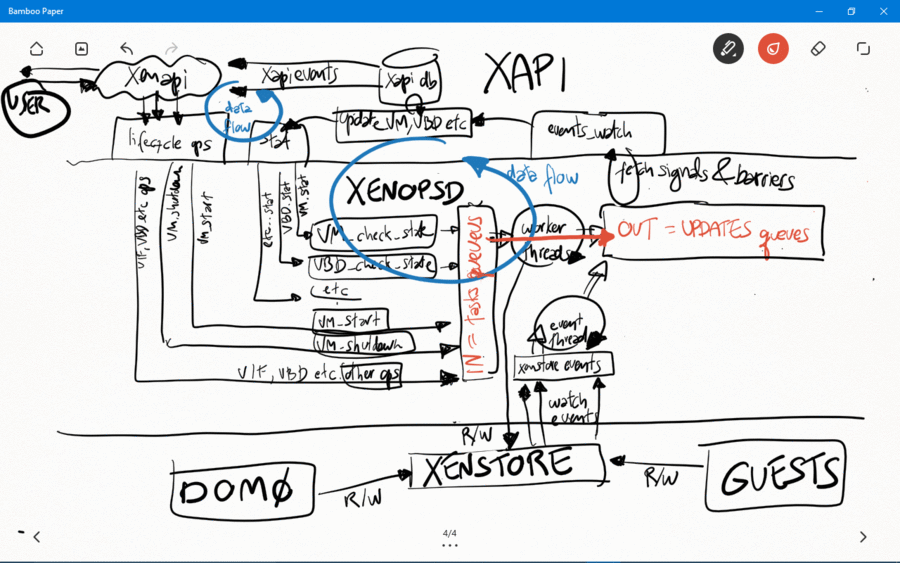 Bamboo Paper
Xenapi
Xapi events
Xapi db
XAPI
USER
data
flow
lifecycle ops
stat
update_VM, VBD etc
events_watch
data flow
fetch signals & barriers
XENOPSD
VIF, VBD etc ops
VM_shutdown
VM_start
etc..stat
VBD.stat
VM.stat
VM_check_state
VBD_check_state
etc
VM_start
VM_shutdown
VIF, VBD etc. other ops
IN = tasks queueus
worker
threads
OUT = UPDATES queues
event
thread
xenstore events
watch
events
R/W
DOMØ
R/W
XENSTORE
R/W
GUESTS
4/4